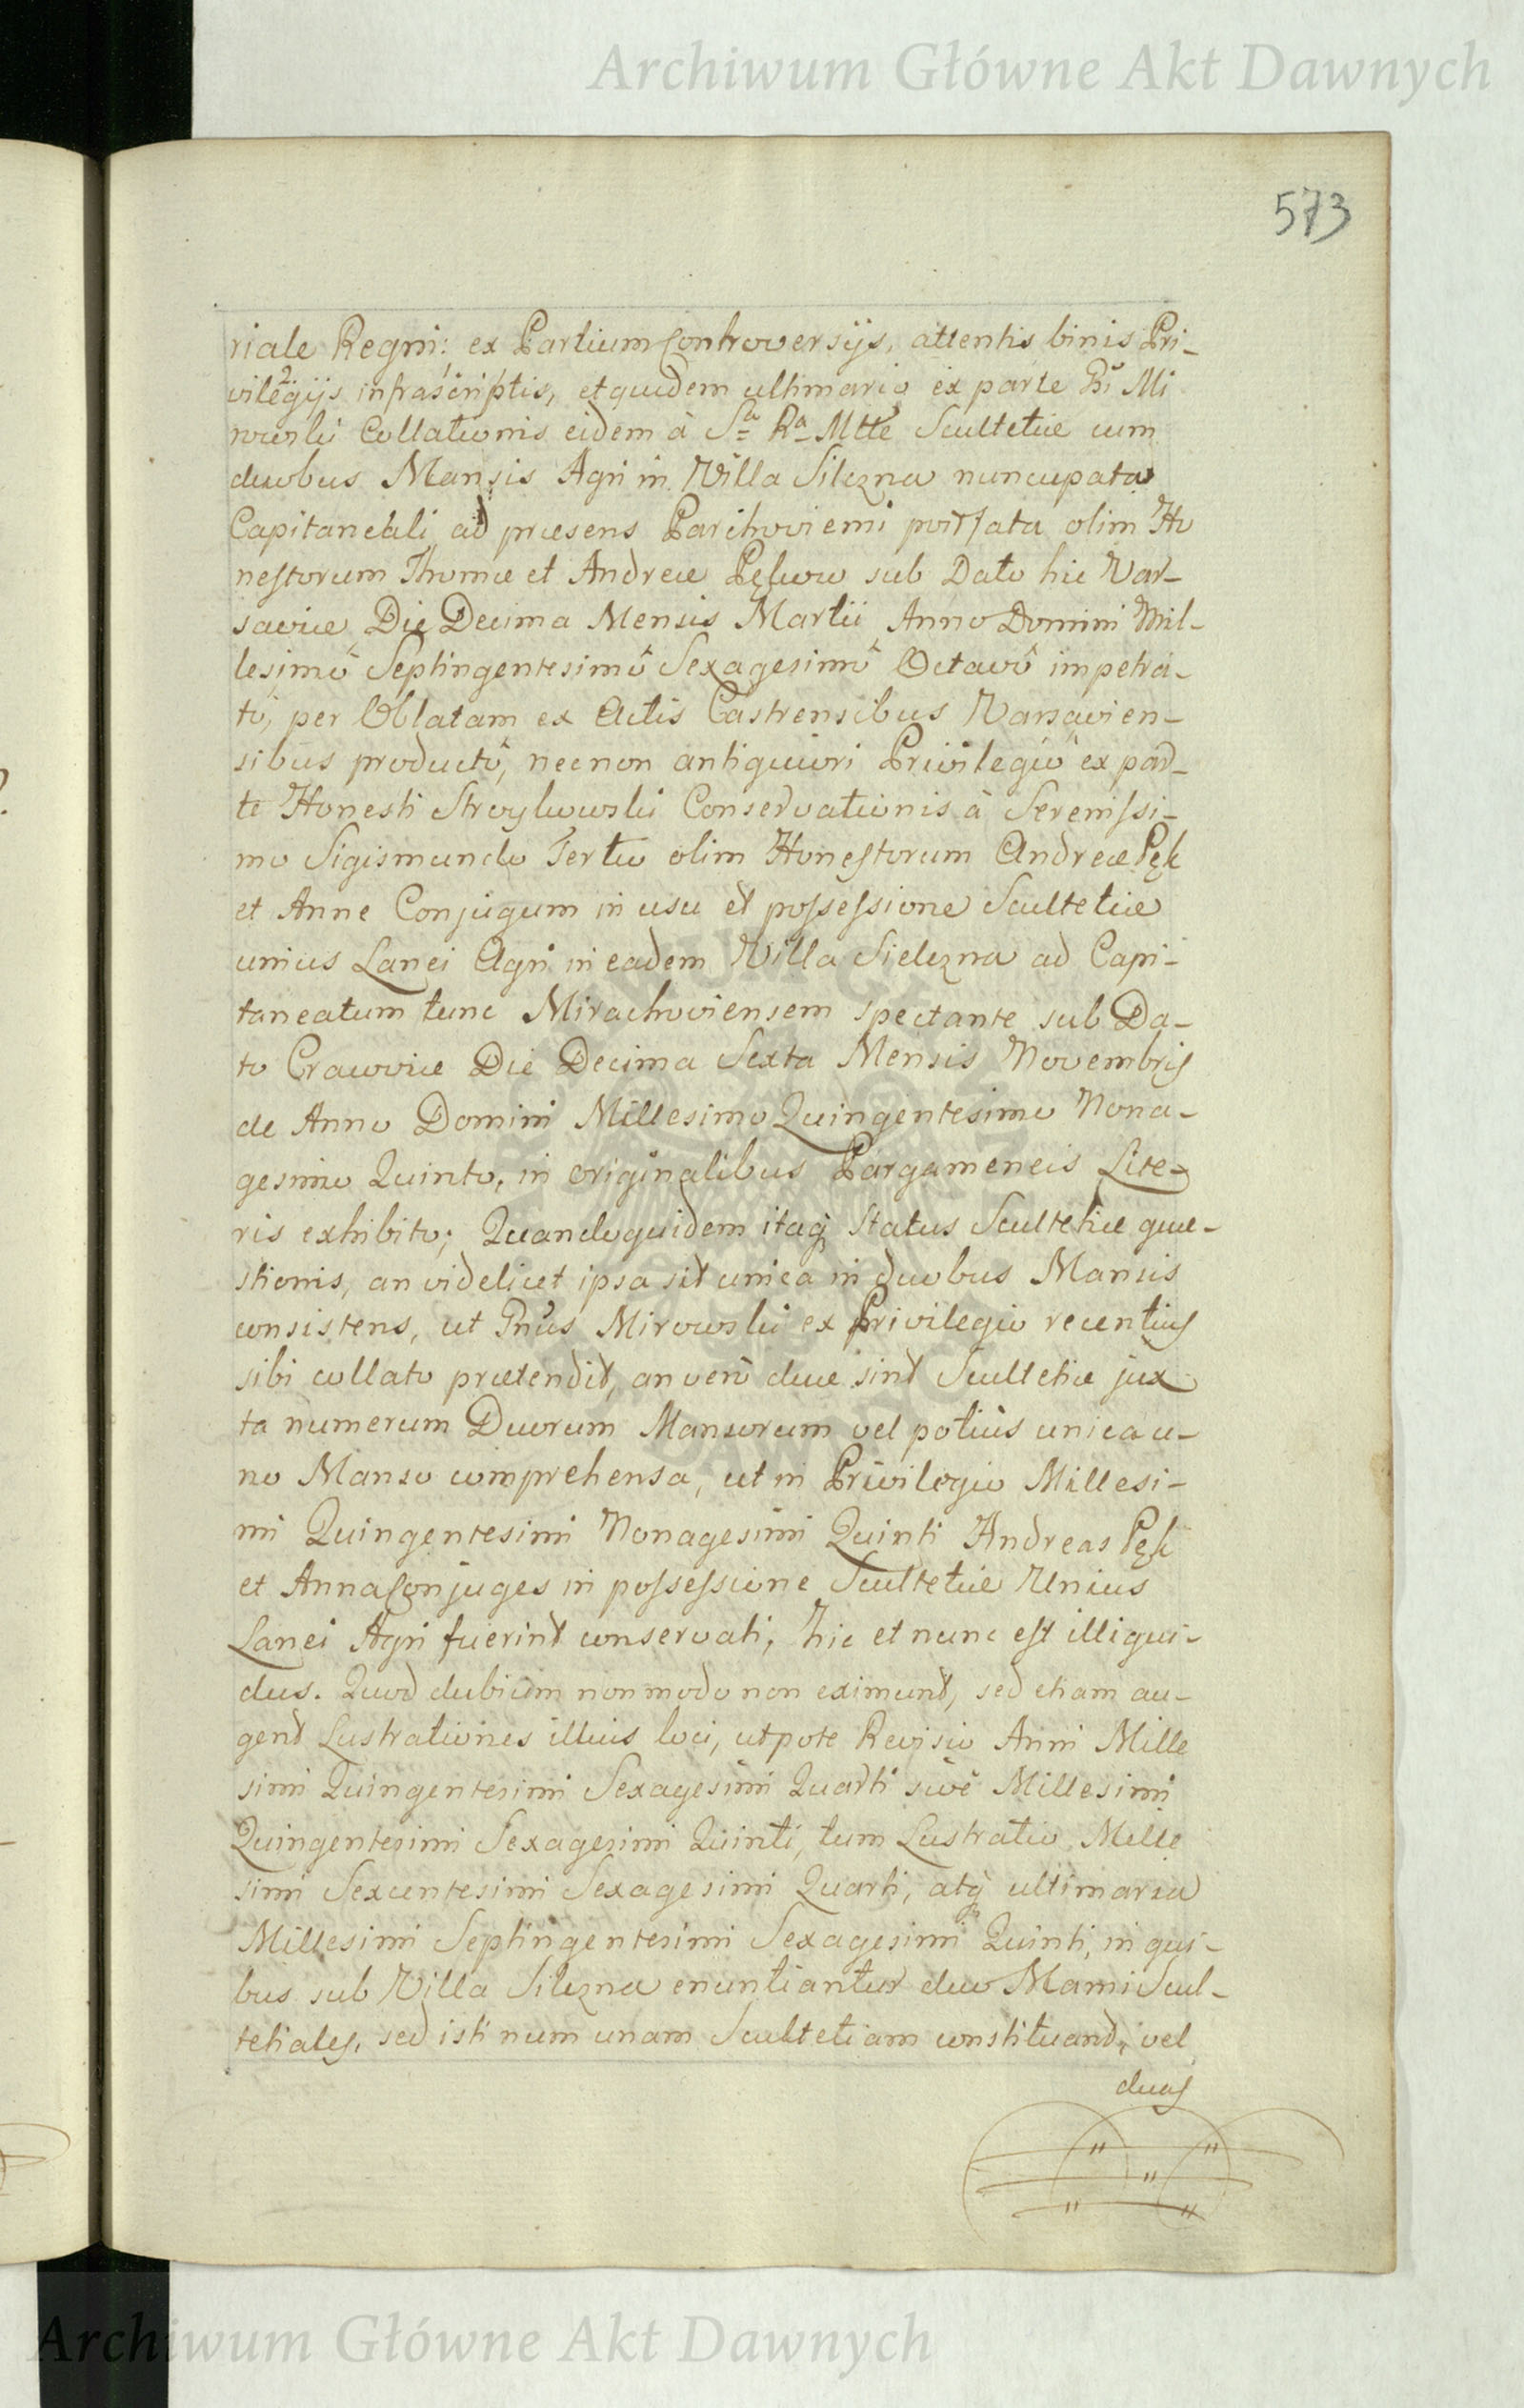 Archiwum Główne Akt Dawnych
573
riale Regni: ex Partium Controversijs, attentis binis Pri-
vilegijs infrascriptis, et quidem ultimario ex parte Mi
rowski Collationis eidem à Sa Ra Mtte Scultetiæ cum
duobus Mansis Agri in Villa Silczna nuncupata
Capitaneali ad præsens Parchoviensi olim Ho
nestorum Thomæ et Andreæ Pęków sub Dato hic Var-
saviæ Die Decima Mensis Martii Anno Domini Mil-
lesimô Septingentesimô Sexagesimô Octavô impetra-
tô, per Oblatam ex Actis Castrensibus Varsavien-
sibus productô, necnon antiquiori Privilegiô ex par-
te Honesti Stroykowski Conservationis à Serenissi-
mo Sigismundo Tertio olim Honestorum Andreæ Pęk
et Annæ Conjugum in usu et possessione Scultetiæ
unius Lanei Agri in eadem Villa Sielczna ad Capi-
taneatum tunc Mirachoviensem spectante sub Da-
to Cracoviæ Die Decima Sexta Mensis Novembris
de Anno Domini Millesimo Quingentesimo Nona-
gesimo Quinto, in originalibus Pargameneis Lite-
ris exhibito; Quandoquidem itaq Status Scultetiæ quæ-
stionis, an videlicet ipsa sit unica in duobus Mansis
consistens, ut Gnus Mirowski ex Privilegio recentius
sibi collato prætendit, an verò duæ sint Scultetiæ jux
ta numerum Duorum Mansorum vel potius unica u-
no Manso comprehensa, ut in Privilegio Millesi-
mi Quingentesimi Nonagesimi Quinti Andreas Pęk
et Anna Conjuges in possessione Scultetiæ Unius
Lanei Agri fuerint conservati, hic et nunc est illiqui-
dus. Quod dubium non modo non eximunt, sed etiam au-
gent Lustrationes illius loci, utpote Revisio Anni Mille
simi Quingentesimi Sexagesimi Quarti sivè Millesimi
Quingentesimi Sexagesimi Quinti, tum Lustratio Mille
simi Sexcentesimi Sexagesimi Quarti, atq ultimaria
Millesimi Septingentesimi Sexagesimi Quinti, in qui-
bus sub Villa Silczna enuntiantur duo Mansi Scul-
tetiales, sed isti num unam Scultetiam constituant, vel
duas
Archiwum Główne Akt Dawnych